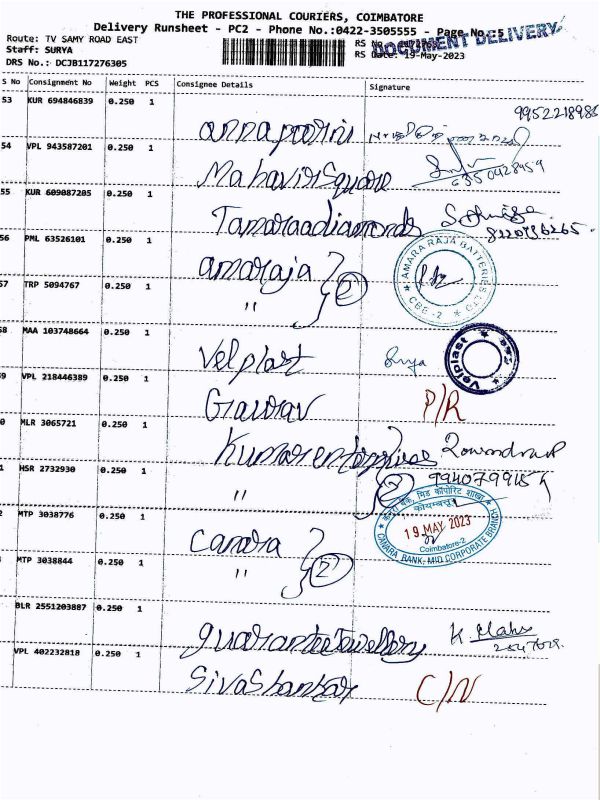 THE PROFESSIONAL COURIERS, COIMBATORE
Delivery Runsheet - PC2 - Phone No.:0422-3505555 - Page No.:5
Route: TV SAMY ROAD EAST
RS No
DOCUMENT DELIVERY
Staff: SURYA
RS Date: 19-May-2023
DRS No.: DCJB117276305
S No Consignment No Weight PCS Consignee Details Signature
53 KUR 694846839 0.250 1 annapoorni 9952218985
54 VPL 943587201 0.250 1 Mahavir Square
55 KUR 609087205 0.250 1 Tamaraadiamonds
56 PML 63526101 0.250 1 amaraja 2
AMARA RAJA BATTERIES LTD CBE-2
57 TRP 5094767 0.250 1 "
58 MAA 103748664 0.250 1 Velplast Surya
Velplast CBE
9 VPL 218446389 0.250 1 Gaurav P/R
0 MLR 3065721 0.250 1 Kumar enterprises
1 HSR 2732930 0.250 1 " 2
2 MTP 3038776 0.250 1 Canara 2
केनरा बैंक, मिड कॉर्पोरेट शाखा
कोयम्बत्तूर
19 MAY 2023
Coimbatore-2
CANARA BANK, MID CORPORATE BRANCH
MTP 3038844 0.250 1 "
BLR 2551203887 0.250 1 guarantee Jewellery
VPL 402232818 0.250 1 Siva Shankar C/N